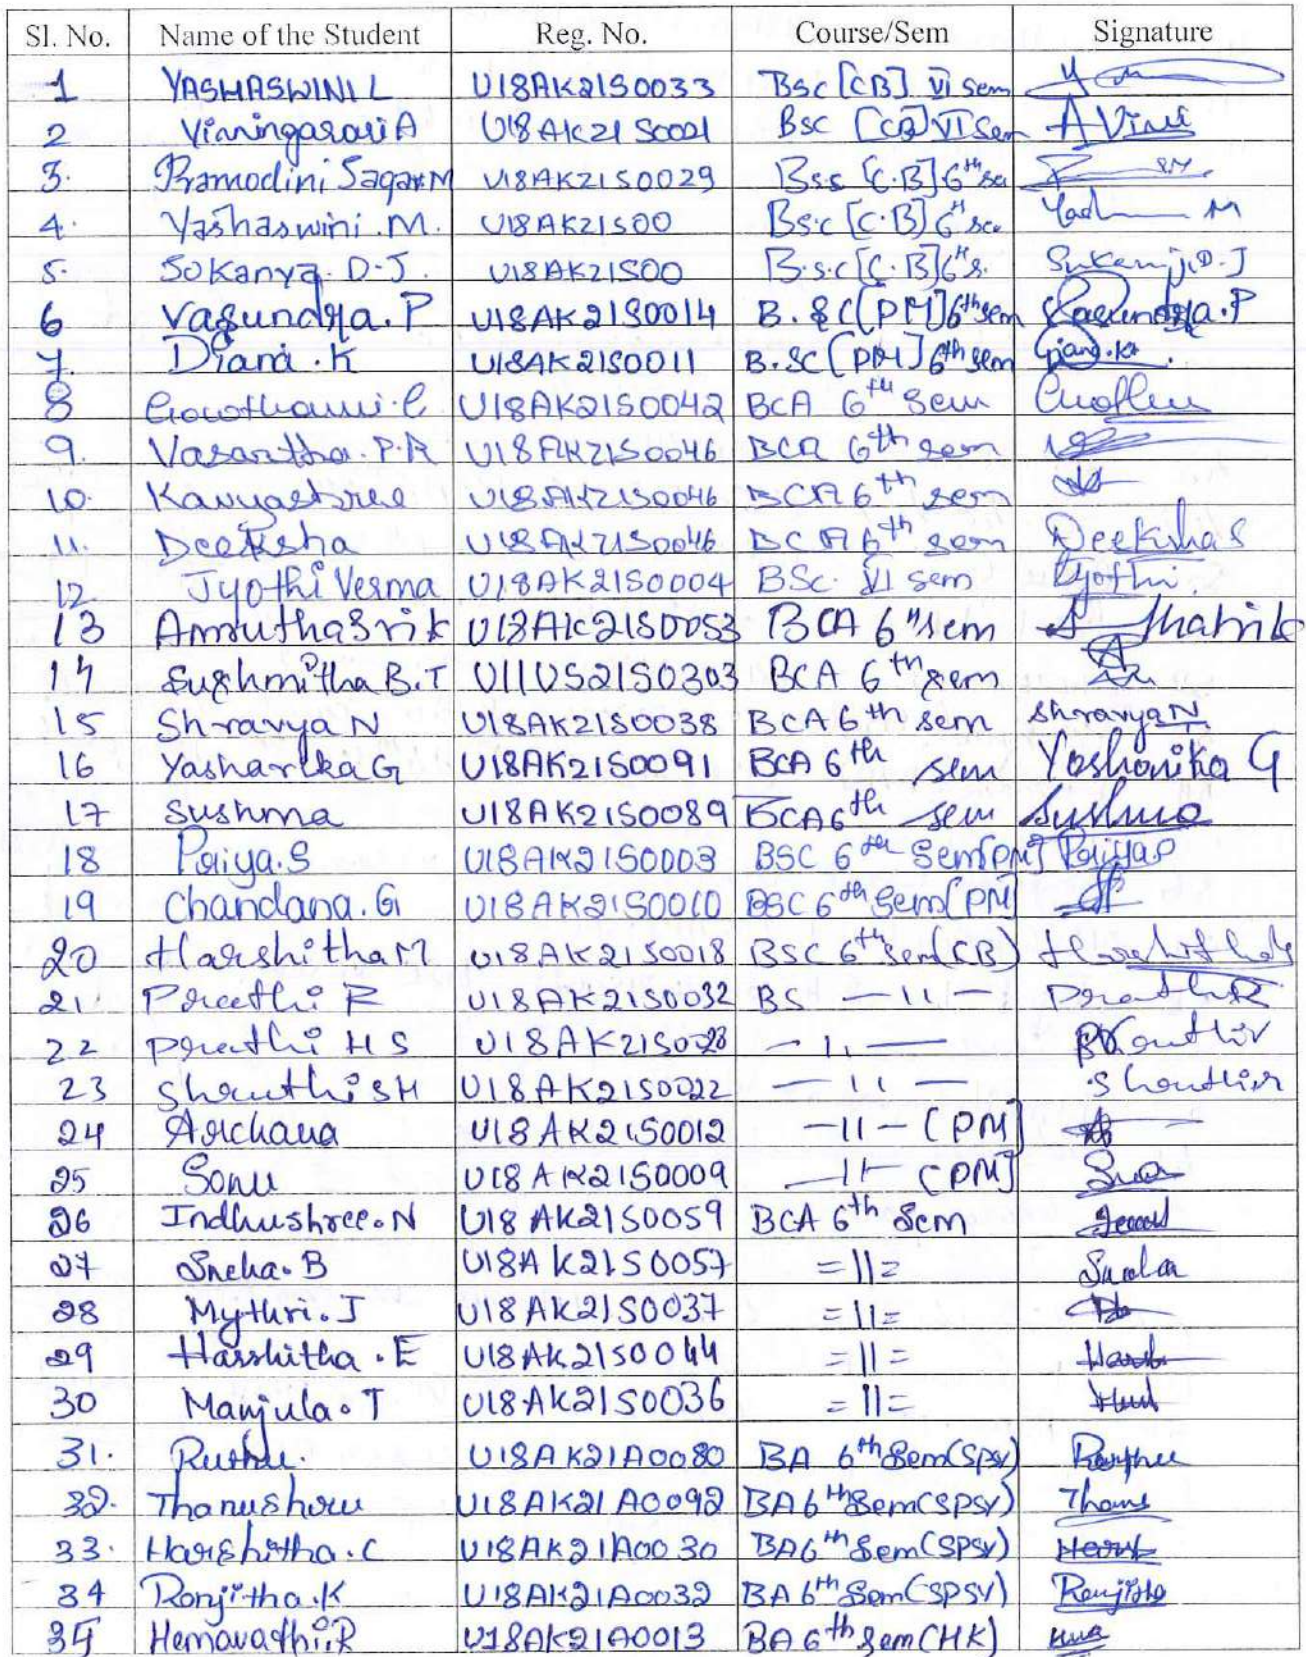 Sl. No. Name of the Student Reg. No. Course/Sem Signature
1 YASHASWINI L U18AK21S0033 Bsc [CB] VI Sem
2 A U18AK21S0021 Bsc [CB] VI Sem A
3. Pramodini Sagar M U18AK21S0029 Bsc [C.B] 6th
4. Yashaswini.M. U18AK21S00 Bsc [C.B] 6th M
5. Sukanya. D.J. U18AK21S00 B.s.c [C.B] 6th s. D.J
6 Vasundra.P U18AK21S0014 B.SC [PM] 6th sem Vasundra.P
7. Diana.K U18AK21S0011 B.SC [PM] 6th sem Diana.K
8 Gowthami.C U18AK21S0042 BCA 6th Sem
9. Vasantha.P.R U18AK21S0046 BCA 6th sem
10. Kavyashree U18AK21S0046 BCA 6th sem
11. Deeksha U18AK21S0046 BCA 6th sem Deeksha S
12 Jyothi Verma U18AK21S0004 BSc. VI sem Jyothi
13 Amrutha Sri k U18AK21S0053 BCA 6th sem
14 Sushmitha B.T U11US21S0303 BCA 6th sem
15 Shravya N U18AK21S0038 BCA 6th sem Shravya N
16 Yashanika G U18AK21S0091 BCA 6th sem Yashanika G
17 Sushma U18AK21S0089 BCA 6th sem Sushma
18 Priya.S U18AK21S0003 BSC 6th Sem [PM] Priya.S
19 Chandana.G U18AK21S0010 BSC 6th Sem [PM]
20 Harshitha M U18AK21S0018 BSC 6th Sem (CB)
21. Preethi R U18AK21S0032 BS — 11 — Preethi R
22 Preethi H S U18AK21S0023 — 11 —
23 Shruthi SH U18AK21S0022 — 11 —
24 Archana U18AK21S0012 — 11 — (PM]
25 Sonu U18AK21S0009 — 11 — (PM]
26 Indhushree.N U18AK21S0059 BCA 6th Sem
27 Sneha.B U18AK21S0057 =11= Sneha
28 Mythri.J U18AK21S0037 =11=
29 Harshitha.E U18AK21S0044 =11= Harsh
30 Manjula.T U18AK21S0036 =11=
31. Ruthu. U18AK21A0080 BA 6th Sem (SPSY) Ruthu
32. Thanushree U18AK21A0092 BA 6th Sem (SPSY)
33. Harshitha.C U18AK21A0030 BA 6th Sem (SPSY)
34 Ranjitha.K U18AK21A0032 BA 6th Sem (SPSY) Ranjitha
35 Hemavathi.R U18AK21A0013 BA 6th Sem (HK)